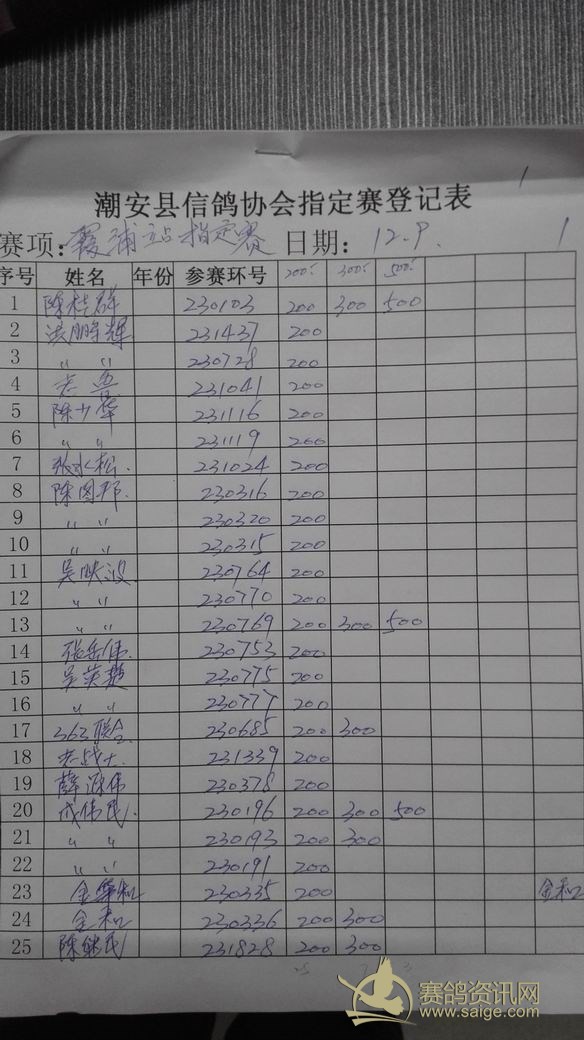 1
潮安县信鸽协会指定赛登记表
赛项:霞浦站指定赛 日期: 12.9. 1
序号 姓名 年份 参赛环号 200: 300: 500:
1 陈桂群 230103 200 300 500
2 洪鹏辉 231437 200
3 〃 〃 230728 200
4 老 231041 200
5 陈少华 231116 200
6 〃 〃 231119 200
7 张水松. 231024 200
8 陈图邦. 230316 200
9 〃 〃 230320 200
10 〃 〃 230315 200
11 吴映波 230764 200
12 〃 〃 230770 200
13 〃 〃 230769 200 300 500
14 张岳伟. 230753 200
15 吴英楚 230775 200
16 〃 〃 230777 200
17 363联合 230685 200 300
18 老战士. 231339 200
19 薛源伟 230378 200
20 成伟民. 230196 200 300 500
21 〃 〃 230193 200 300
22 〃 〃 230191 200
23 金和 230335 200 金和
24 金和 230336 200 300
25 陈继民 231828 200 300
25 7 3
赛鸽资讯网
www.saige.com